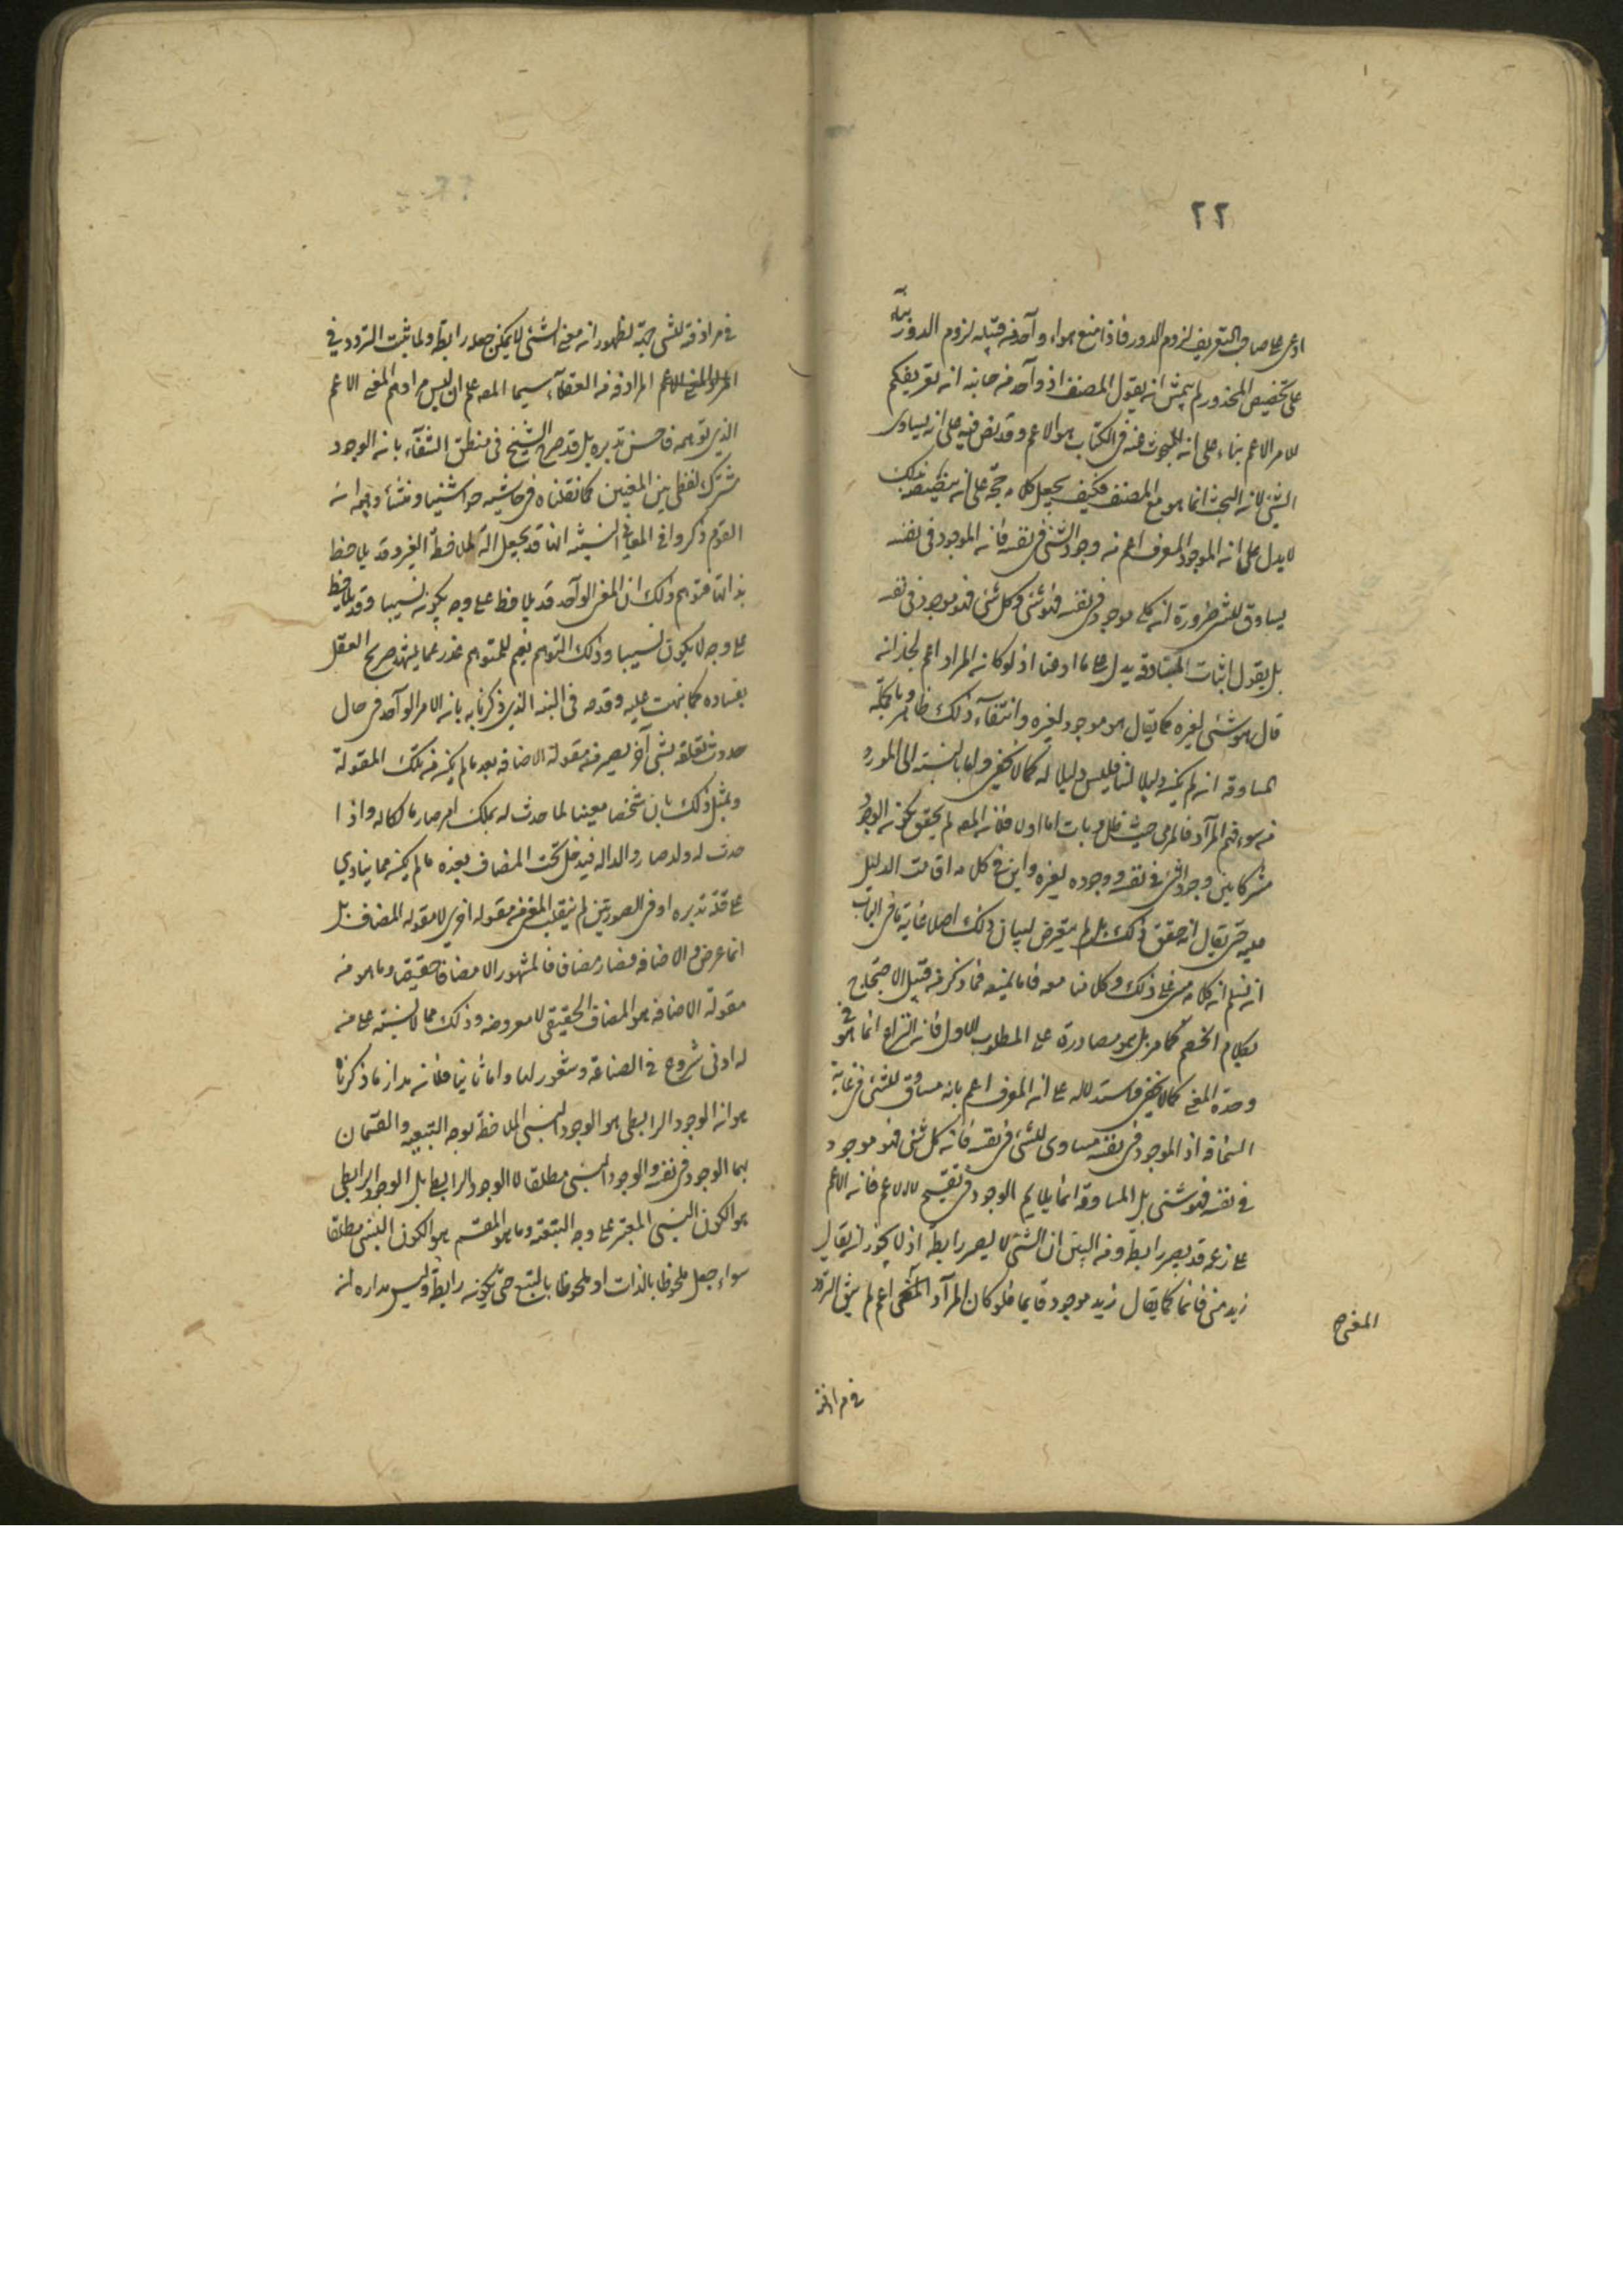 ٢٢
ادعى على صاحب التعريف لزوم الدور فاذا منع هواء وآحد من قبله لزوم الدور بناء
على تخصيص المحذور لم يتمش ان يقول المصنف اذ وآحد من جانبه انه تعريفكم
للامر الاعم بناء على انه المبحوث عنه فى الكتاب هو الاعم وقد نص فيه على انه يساوى
الشئ لانه البحث انما هو مع المصنف فكيف يجعل كلامه حجة على
لا يدل على انه الموجود المعرف اعم من وجود الشئ فى نفسه فانه الموجود فى نفسه
يساوق للشئ ضرورة انه كل موجود فى نفسه فهو شئ وكل شئ فهو موجود فى نفسه
بل نقول اثبات المساوقة يدل على ما ادعينا اذ لو كان المراد اعم لجاز انه
قال هو شئ لغيره كما يقال هو موجود لغيره وانتفآء ذلك ظاهر وبالجملة
المساوقة ان لم يكن دليلا لنا فليس دليلا له كما لا يخفى واما بالنسبة الى المورد
من سوء فهم المرآد فالمرمى حيث قال وبات اما اولا فلانه المصه لم يحقق بكونه الوجود
مشتركا بين وجود الشئ فى نفسه ووجوده لغيره واين فى كلامه اقامت الدليل
عليه حتى يقال انه حقق ذلك بل لم يتعرض لبيان ذلك اصلا غاية ما فى الباب
انه نسلم انه كلامه مبنى على ذلك وكلامنا معه فاما لمنعه فما ذكر من قبيل الاحتجاج
بكلام الخصم كما مر بل هو مصادرة على المطلوب الاول فانه النزاع انما هو فى
وحدة المعنى كما لا يخفى واستدلاله على انه المعرف اعم بانه مساوق للشئ فى غاية
السخافة اذ الموجود فى نفسه مساوى للشئ فى نفسه فانه كل شئ فهو موجود
فى نفسه فهو شئ بل المساوقة انما يلايم الوجود فى نفسه لا الاعم فانه الاعم
على زعمه قد يصير رابطة ومن البين ان الشئ لا يصير رابطة اذ لا يجوز ان يقال
زيد شئ قائما كما يقال زيد موجود قايما فلو كان المرآد المعنى اعم لم يبق التردد
المعنى صح
فى مرادفة
فى مرادفة للشئ جهة لظهور انه معنى الشئ لا يمكن جعله رابطة ولما ثبت التردد فى
المرادفة من العقلآء سيما المصه علم ان ليس مرادهم المعنى الاعم
الذى توهمه فاحسن تدبره بل قد صرح الشيخ فى منطق الشفآء بانه الوجود
مشترك لفظى بين المعنيين كما نقلناه فى حاشية حواشينا ومنشأ وهمه انه
القوم ذكروا فى المعانى النسبية انها قد يجعل آلة لملاحظة الغير وقد يلاحظ
بذاتها فتوهم ذلك ان المعنى الوآحد قد يلاحظ على وجه يكون نسبيا وقد يلاحظ
على وجه لا يكون نسبيا وذلك التوهم نعم للمتوهم عذر عما يشهد صريح العقل
بفساده كما نبهت عليه وقدمه فى البند الذى ذكرنا به بانه الامر الوآحد فى حال
حدوث تعلقه بشئ آخر يصير منه مقولة الاضافة بعد ما لم يكن من تلك المقولة
ويمثل ذلك بان شخصا معينا لما حدث له بملك امر صار مالكا له واذا
حدث له ولد صار والدا له فيدخل تحت المضاف بعده ما لم يكن مما ينادى
على قلة تدبره او فى الصورتين لم ينقلب المعنى من مقوله اخرى لا مقوله المضاف بل
انما عرض له الاضافه فصار مضافا فالمشهور الا مضافا حقيقيا وما هو من
مقولة الاضافه هو المضاف الحقيقى لا معروضه وذلك مما لا يشتبه على من
له ادنى شروع فى الصناعة وشعور لها واما ثانيا فلانه مدار ما ذكرناه
هو انه الوجود الرابطى هو الوجود النسبى الملاحظ بوجه التبعيه والقسمان
هما الوجود فى نفسه والوجود النسبى مطلقا لا الوجود الرابطى بل الوجود الرابطى
هو الكون النسبى المعتبر على وجه التبعية وما هو المقسم هو الكون النسبى مطلقا
سواء جعل ملحوظا بالذات او ملحوظا بالتبع حتى يكون رابطة وليس مداره انه